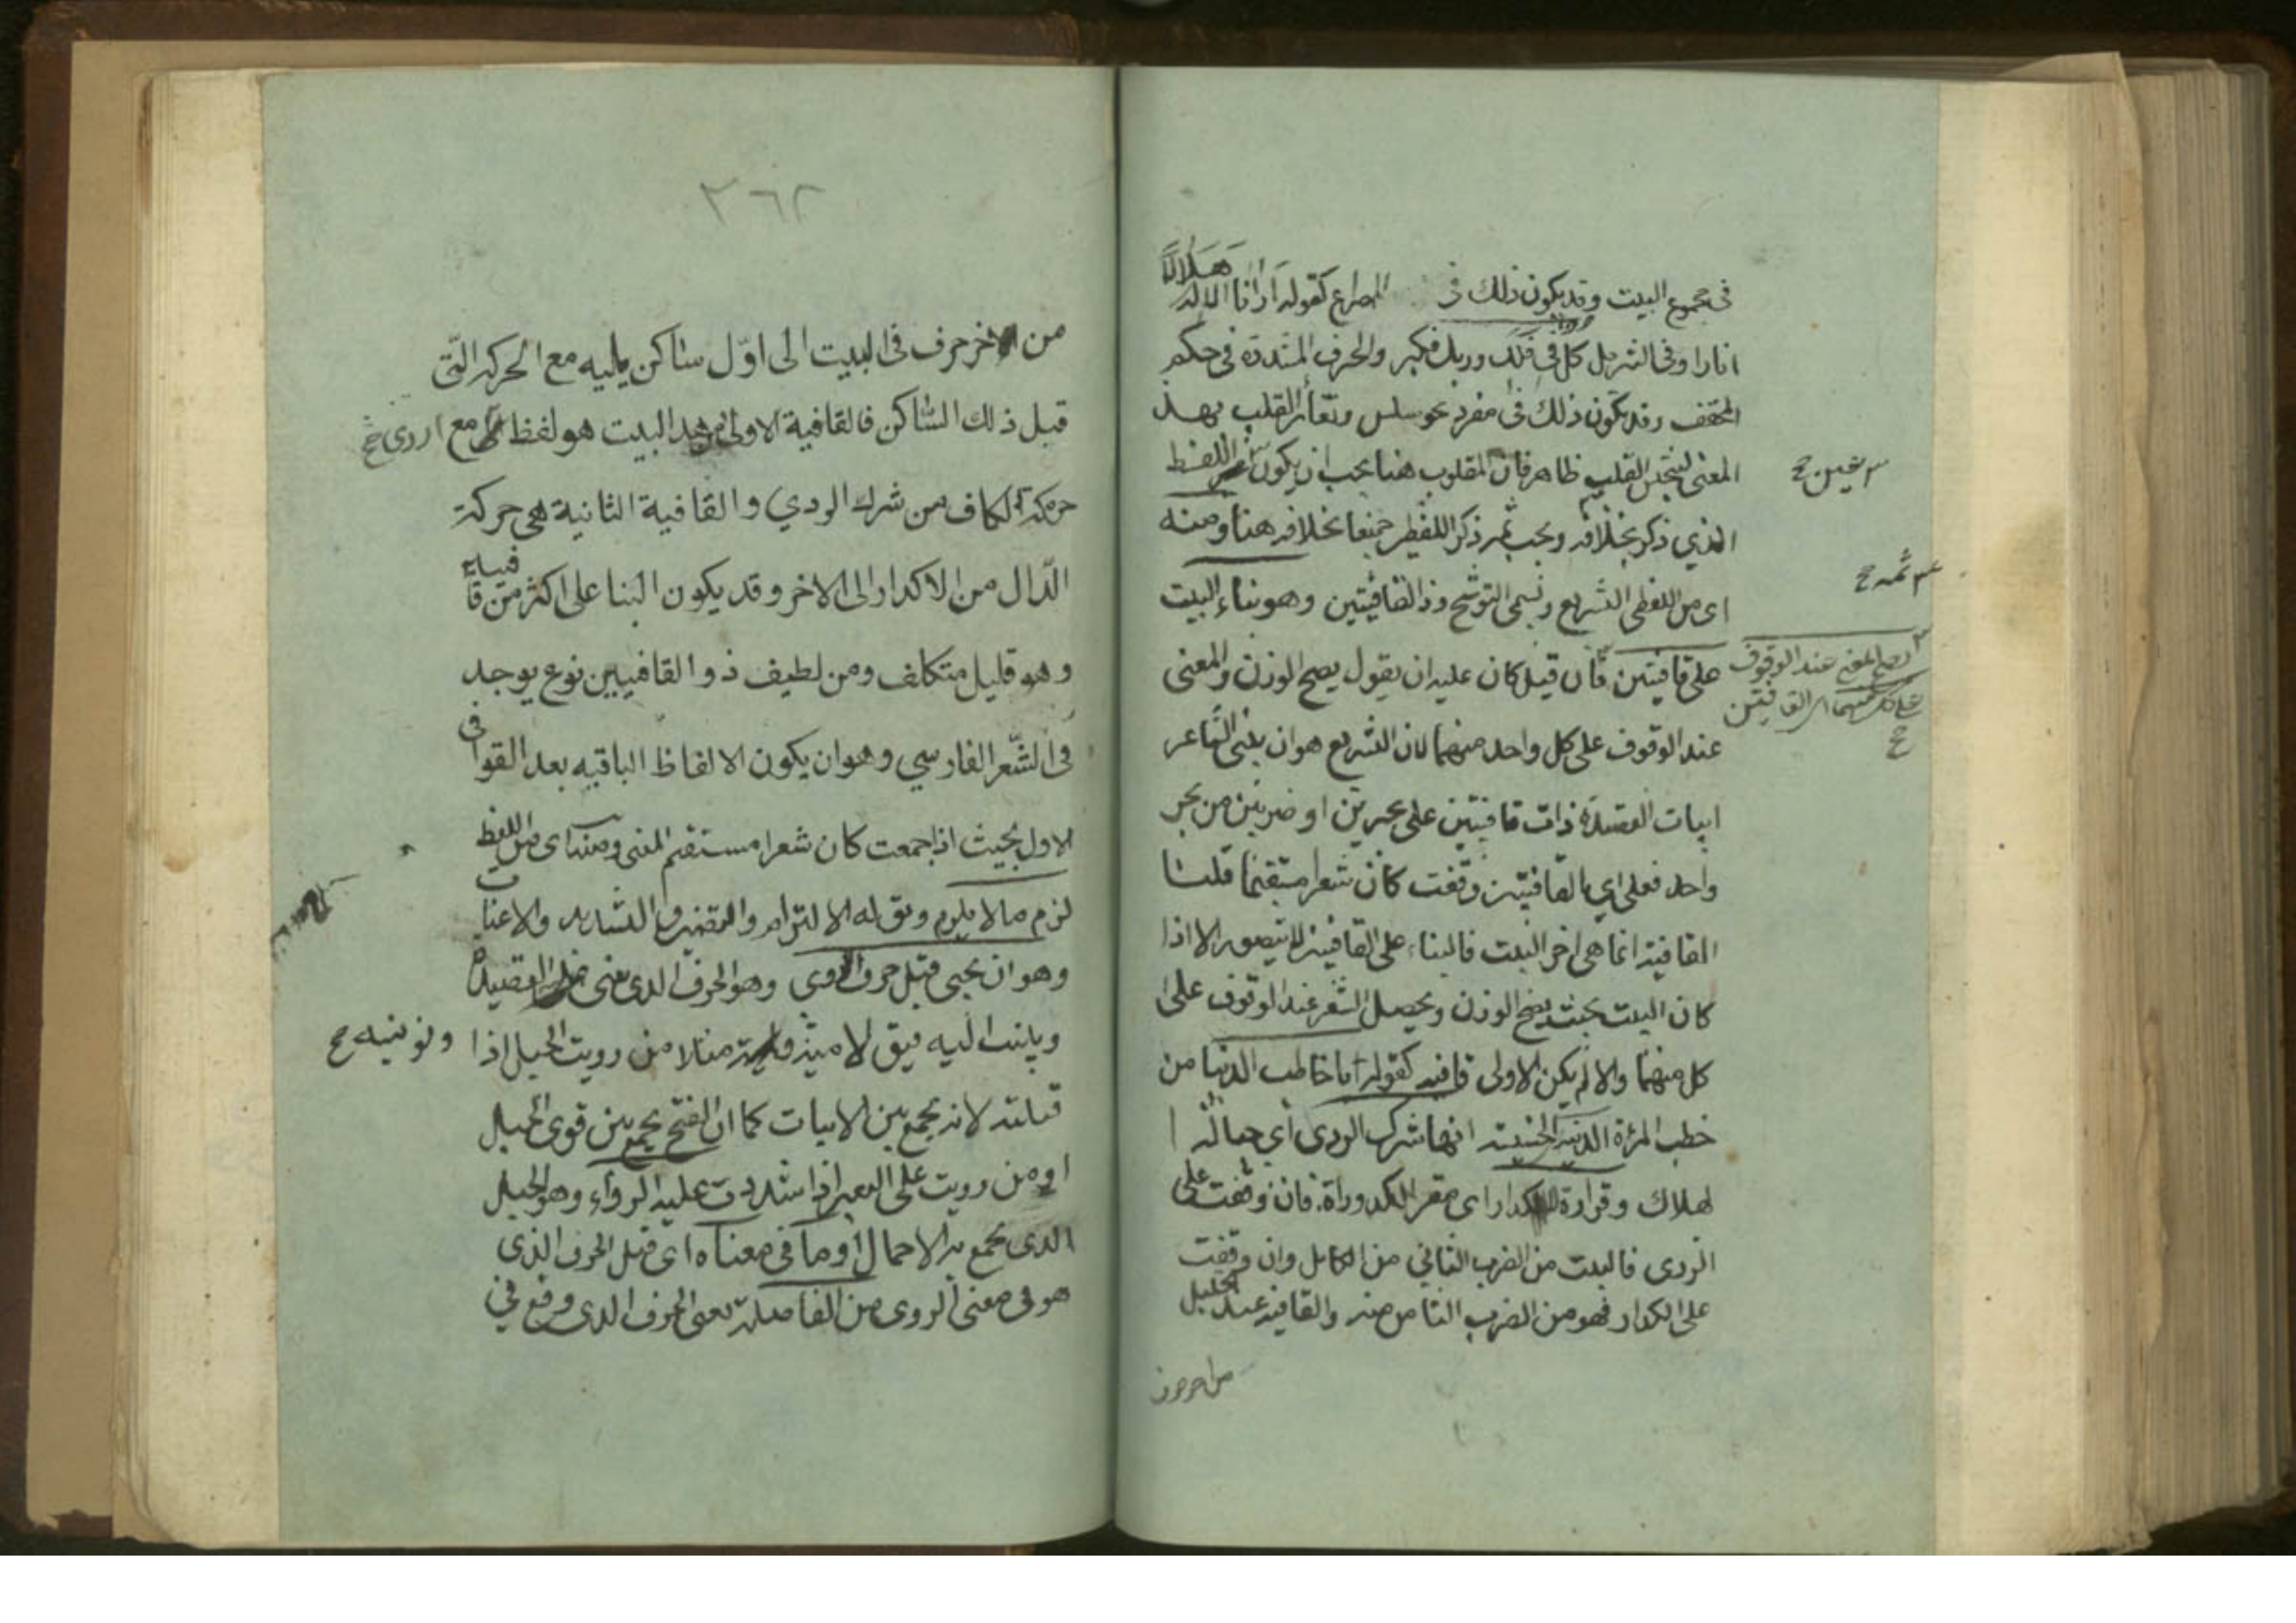 في مجموع البيت وقد يكون ذلك في المصراع كقوله ارانا الاله
هلالا
انارا وفي النثر مثل كل في فلك وربك فكبر والحرف المشددة في حكم
المخفف وقد يكون ذلك في مفرد نحو سلس وتغاير القلب بهذا
المعنى لتجنيس القلب ظاهر فان المقلوب هنا يجب ان يكون اللفظ
الذي ذكر بخلافه ويجب ثم ذكر اللفظين جميعا بخلافه هنا ومنه
اى من اللفظى التشريع ويسمى التوشيح وذا القافيتين وهو بناء البيت
على قافيتين فان قيل كان عليه ان يقول يصح الوزن والمعنى
عند الوقوف على كل واحد منهما لان التشريع هو ان يبنى الشاعر
ابيات القصيدة ذات قافيتين على بحرين او ضربين من بحر
واحد فعلى اي القافيتين وقفت كان شعرا مستقيما قلنا
القافية انما هي اخر البيت فالبناء على القافيتين لا يتصور الا اذا
كان البيت بحيث يصح الوزن ويحصل الشعر عند الوقوف على
كل منهما والا لم يكن الاولى قافية كقوله يا خاطب الدنيا من
خطب المرأة الدنية الخسيسة انها شرك الردى اي حبالة ا
لهلاك وقرارة الاكدار اى مقر الكدورات فان وقفت على
الردى فالبيت من الضرب الثاني من الكامل وان وقفت
على الاكدار فهو من الضرب الثامن منه والقافية عند الخليل
من اخر حرف
يصح المعنى عند الوقوف
على كل منهما اى القافيتين
ح
٣٦٢
من الاخر حرف في البيت الى اوّل ساكن يليه مع الحركة الّتى
قبل ذلك الساكن فالقافية الاولى من هذا البيت هو لفظ مع
حركة الكاف من شرك الردي والقافية الثانية هي حركة
الدّال من الاكدار الى الاخر وقد يكون البنا على اكثر من قا
فيتين
وهو قليل متكلف ومن لطيف ذو القافيتين نوع يوجد
في الشّعر الفارسي وهو ان يكون الالفاظ الباقيه بعد القوا
فى
الاول بحيث اذا جمعت كان شعرا مستقيم المعنى ومنه اى من اللفظ
لزوم مالا يلزم ويق له الالتزام والتضمين والتشديد والاعنا
ت
وهو ان يجيى قبل حرف الروى وهو الحرف الذى تبنى عليه القصيدة
وينسب اليه فيق لامية مثلا من رويت الحبل اذا
ونونيه ح
فتلته لانه يجمع بين الابيات كما ان الفتل يجمع بين قوى الحبل
او من رويت على البعير اذا شددت عليه الرواء وهو الحبل
الذى يجمع به الاحمال او ما في معناه اى قبل الحرف الذى
هو في معنى الروى من الفاصلة يعنى الحرف الذى وقع في